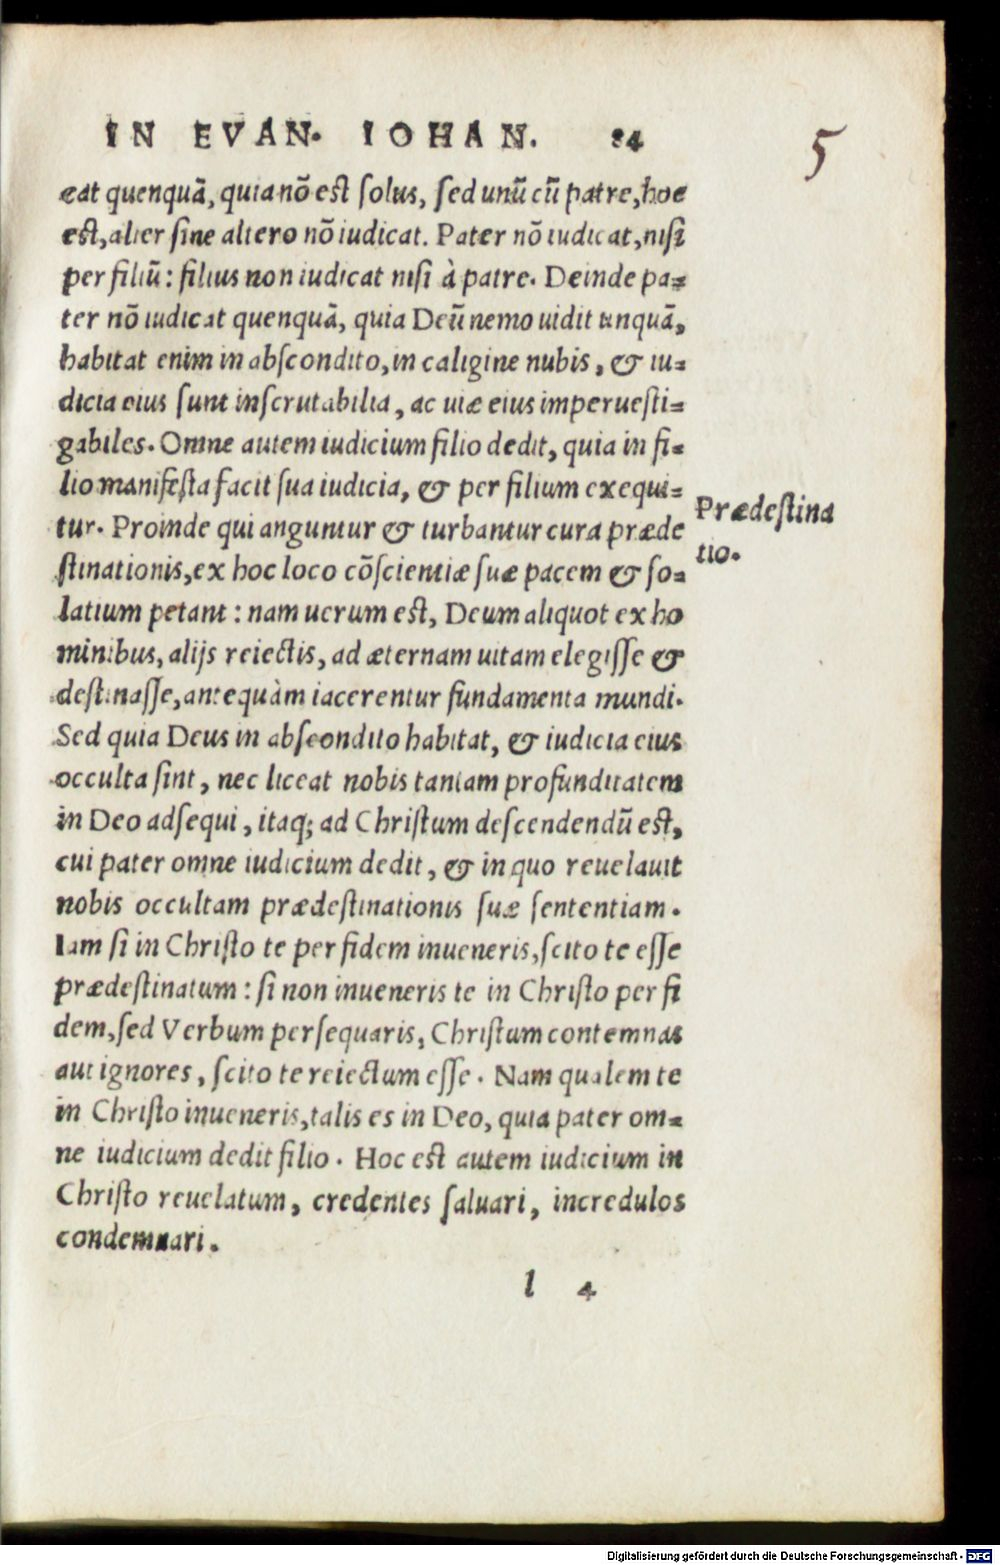 IN EVAN. IOHAN. 84
5
cat quenquã, quia nõ est solus, sed unũ cũ patre, hoc
est, alter sine altero nõ iudicat. Pater nõ iudicat, nisi
per filiũ: filius non iudicat nisi à patre. Deinde pa=
ter nõ iudicat quenquã, quia Deũ nemo uidit unquã,
habitat enim in abscondito, in caligine nubis, & iu=
dicia eius sunt inscrutabilia, ac uiæ eius imperuesti=
gabiles. Omne autem iudicium filio dedit, quia in fi=
lio manifesta facit sua iudicia, & per filium exequi=
tur. Proinde qui anguntur & turbantur cura præde
stinationis, ex hoc loco cõscientiæ suæ pacem & so=
latium petant: nam uerum est, Deum aliquot ex ho
minibus, alijs reiectis, ad æternam uitam elegisse &
destinasse, antequàm iacerentur fundamenta mundi.
Sed quia Deus in abscondito habitat, & iudicia eius
occulta sint, nec liceat nobis tantam profunditatem
in Deo adsequi, itaq; ad Christum descendendũ est,
cui pater omne iudicium dedit, & in quo reuelauit
nobis occultam prædestinationis suæ sententiam.
Iam si in Christo te per fidem inueneris, scito te esse
prædestinatum: si non inueneris te in Christo per fi
dem, sed Verbum persequaris, Christum contemnas
aut ignores, scito te reiectum esse. Nam qualem te
in Christo inueneris, talis es in Deo, quia pater om=
ne iudicium dedit filio. Hoc est autem iudicium in
Christo reuelatum, credentes saluari, incredulos
condemnari.
Prædestina
tio.
l 4
Digitalisierung gefördert durch die Deutsche Forschungsgemeinschaft - DFG